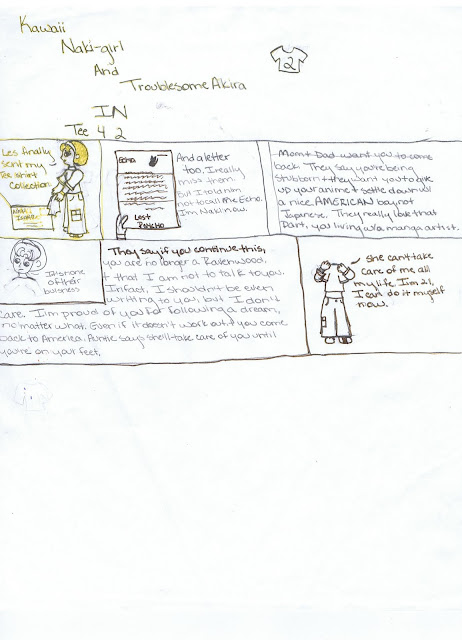 Kawaii
Naki-girl
And
Troublesome Akira
IN
Tee 4 2
2
Les finally
sent my
Tee shirt
collection
Echo
Love
Pancho
And a letter
too, I really
miss them.
But I told him
not to call me Echo.
I'm Naki now.
Mom + Dad want you to come
back. They say you're being
stubborn + they want you to give
up your anime + settle down w/
a nice AMERICAN boy not
Japanese. They really love that
part, you living w/ a manga artist.
It is none
of their
buisness
They say if you continue this,
you are no longer a Ravenwood,
+ that I am not to talk to you.
Infact, I shouldn't be even
writing to you, but I don't
care. I'm proud of you for following a dream,
no matter what. Even if it doesn't work out + you come
back to America. Auntie says she'll take care of you until
you're on your feet.
She can't take
care of me all
my life. I'm 21,
I can do it myself
now.